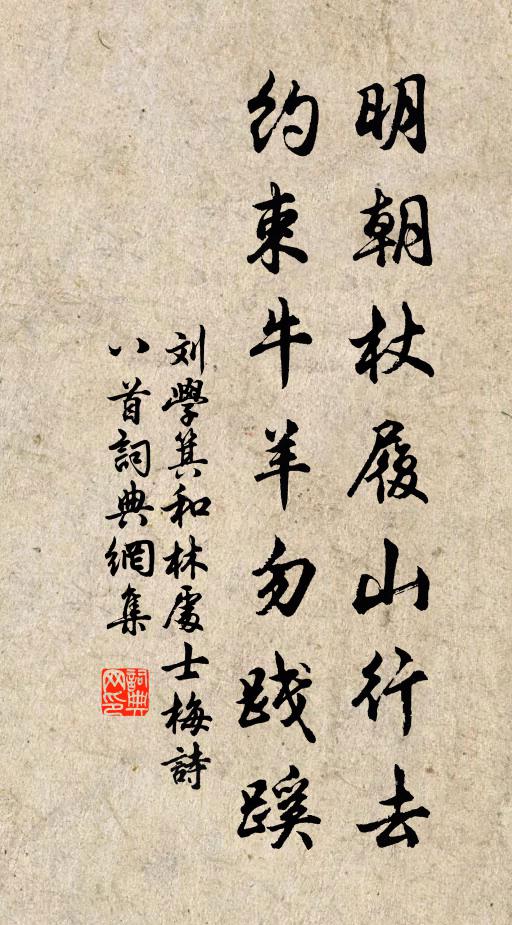 明朝杖履山行去
約束牛羊勿踐蹊
刘學箕和林處士梅詩
八首詞典網集
詞典
网印